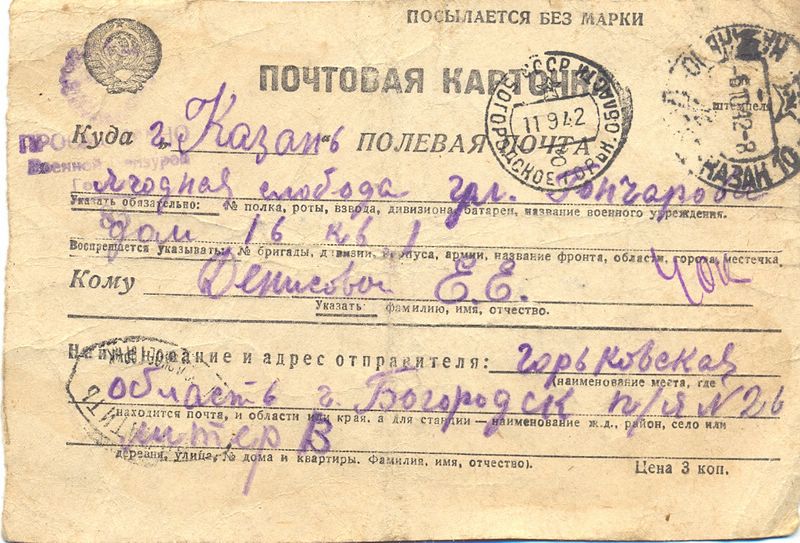 ПОСЫЛАЕТСЯ БЕЗ МАРКИ
ПОЧТОВАЯ КАРТОЧКА
СССР
БОГОРОДСКОЕ ГОРЬК. ОБЛАСТИ
11 9 42
КАЗАНЬ 10
штемпель
Военной Цензурой
Куда г. „Казань“ ПОЛЕВАЯ ПОЧТА
Ягодная слобода ул. Гончарова
Указать обязательно: № полка, роты, взвода, дивизиона, батареи, название военного учреждения.
дом 16 кв 1
Воспрещается указывать: № бригады, дивизии, корпуса, армии, название фронта, области, города, местечка
Кому Денисовой Е.Е.
Указать: фамилию, имя, отчество.
Наименование и адрес отправителя: горьковская
(наименование места, где
область г. Богородск п/я N 26
находится почта, и области или края, а для станции — наименование ж.д., район, село или
литер В
деревня, улица, № дома и квартиры. Фамилия, имя, отчество).
Цена 3 коп.